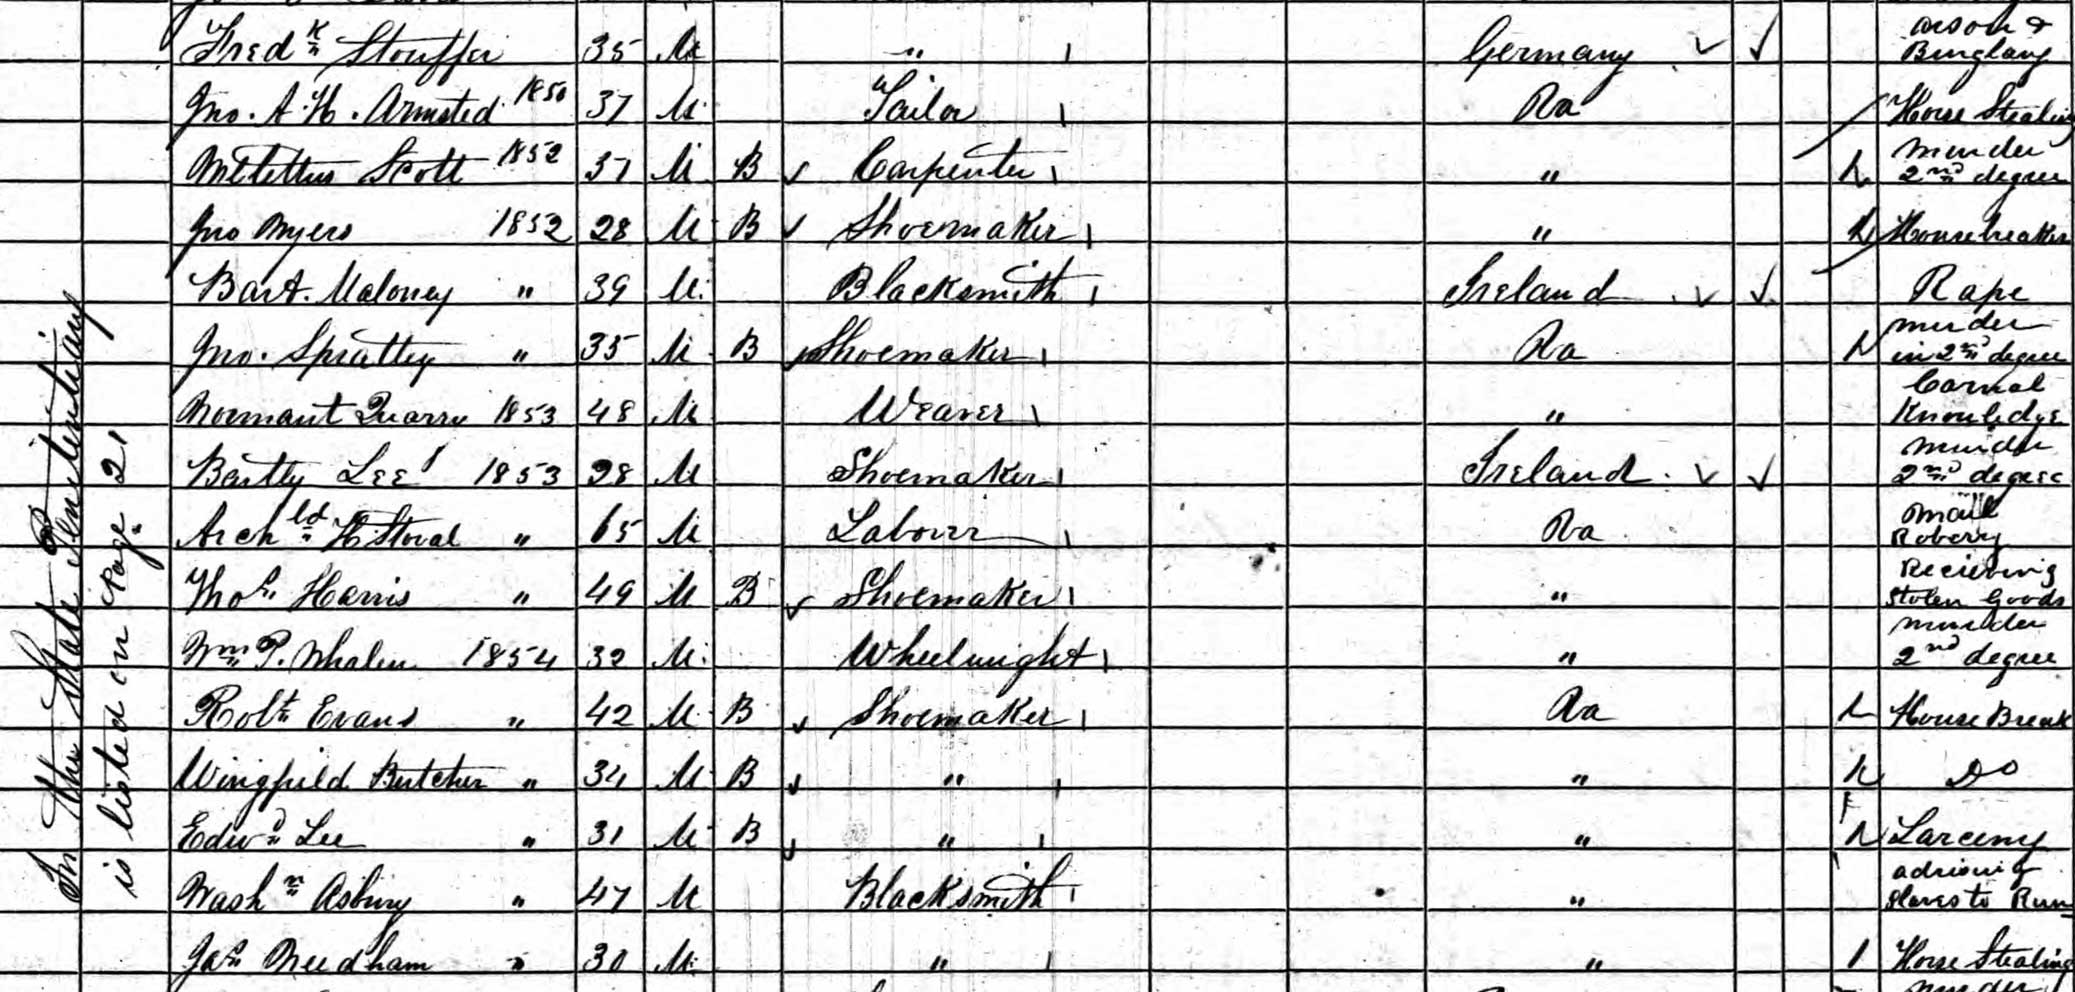 Fredk Stouffer 35 M " Germany arson & Burglary
Jno. A. H. Armsted 1850 37 M Tailor Va Horse Stealing
Scott 1852 37 M B Carpenter " murder 2nd degree
Jno Myers 1852 28 M B Shoemaker " Housebreaker
Bart. Maloney " 39 M Blacksmith Ireland Rape
Jno. Spratley " 35 M B Shoemaker Va murder in 2nd degree
Normant Quarry 1853 48 M Weaver " Carnal Knowledge
Bartley Lee 1853 28 M Shoemaker Ireland murder 2nd degree
Archld H Stoval " 65 M Laborer Va mail Robery
Thos Harris " 49 M B Shoemaker " Recieving Stolen Goods
Wm P. Whalen 1854 32 M Wheelwright " murder 2nd degree
Robt Evans " 42 M B Shoemaker Va House Break
Wingfield Butcher " 34 M B " " Do
Edwd Lee " 31 M B " " Larceny
Washn Asbury " 47 M Blacksmith " advising slaves to Run
Jas Needham " 30 M " " Horse Stealing
murder
In the State Penitentiary
is listed on Page 21